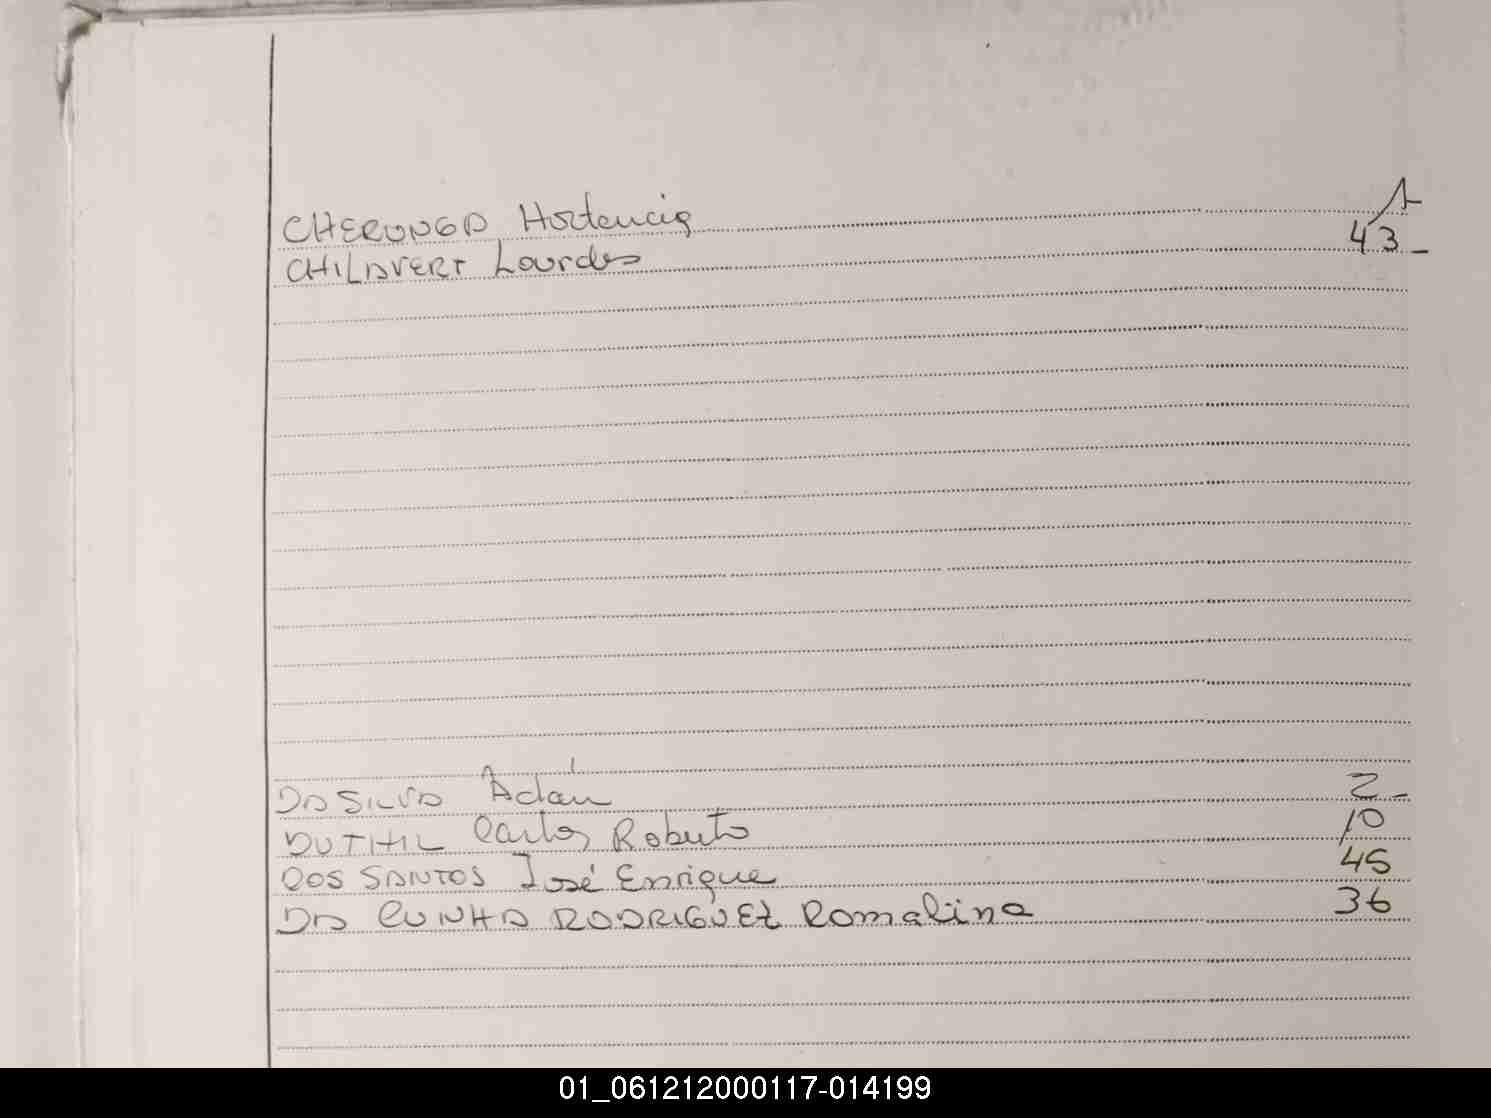 CHERONGA Hortencia 1
CHILAVERT Lourdes 43_
DA SILVA Adán 2_
DUTHIL Carlos Roberto 10
DOS SANTOS José Enrique 45
DA CUNHA RODRIGUEZ Romalina 36
01_061212000117-014199